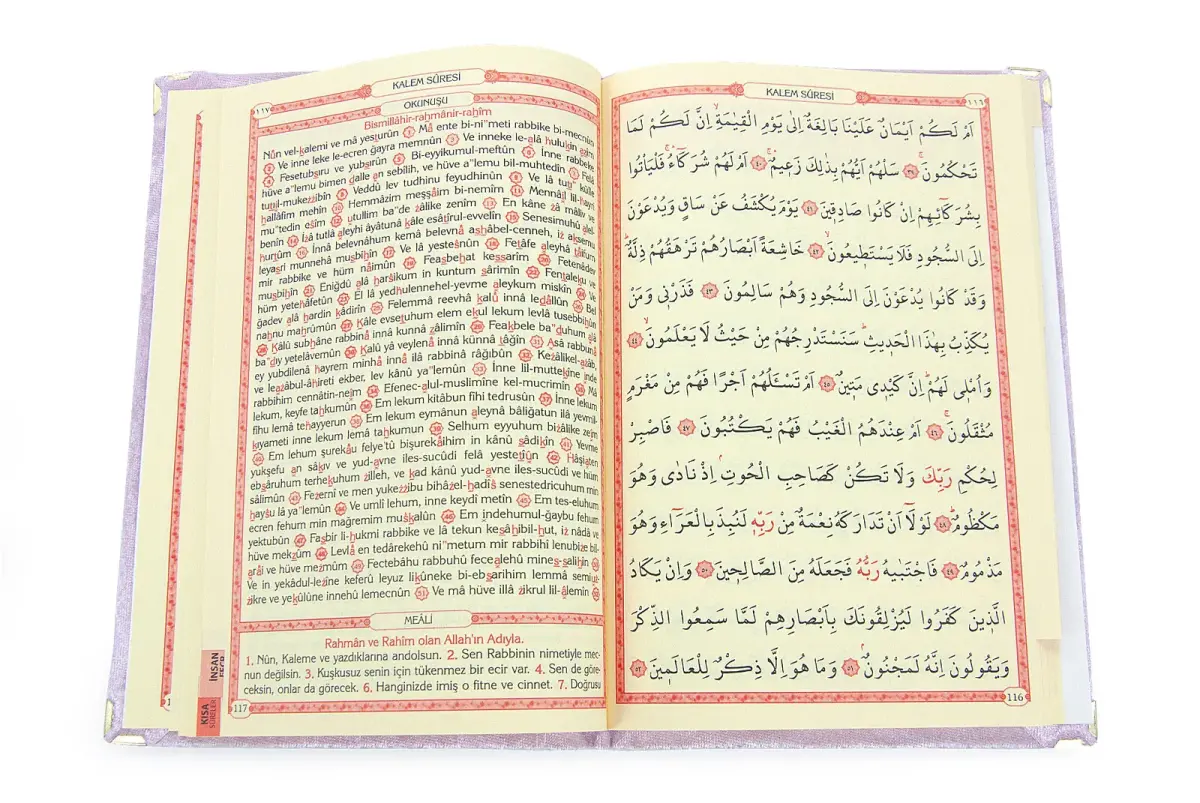 KALEM SÛRESİ
١١٦
اَمْ لَكُمْ اَيْمَانٌ عَلَيْنَا بَالِغَةٌ اِلٰى يَوْمِ الْقِيٰمَةِۙ اِنَّ لَكُمْ لَمَا
تَحْكُمُونَۚ ٣٩ سَلْهُمْ اَيُّهُمْ بِذٰلِكَ زَعِيمٌۚ ٤٠ اَمْ لَهُمْ شُرَكَٓاءُۚ فَلْيَأْتُوا
بِشُرَكَٓائِهِمْ اِنْ كَانُوا صَادِقِينَ ٤١ يَوْمَ يُكْشَفُ عَنْ سَاقٍ وَيُدْعَوْنَ
اِلَى السُّجُودِ فَلَا يَسْتَطِيعُونَۙ ٤٢ خَاشِعَةً اَبْصَارُهُمْ تَرْهَقُهُمْ ذِلَّةٌۜ
وَقَدْ كَانُوا يُدْعَوْنَ اِلَى السُّجُودِ وَهُمْ سَالِمُونَ ٤٣ فَذَرْنِي وَمَنْ
يُكَذِّبُ بِهٰذَا الْحَدِيثِۜ سَنَسْتَدْرِجُهُمْ مِنْ حَيْثُ لَا يَعْلَمُونَۙ ٤٤
وَاُمْلِي لَهُمْۜ اِنَّ كَيْدِي مَتِينٌ ٤٥ اَمْ تَسْـَٔلُهُمْ اَجْرًا فَهُمْ مِنْ مَغْرَمٍ
مُثْقَلُونَۚ ٤٦ اَمْ عِنْدَهُمُ الْغَيْبُ فَهُمْ يَكْتُبُونَ ٤٧ فَاصْبِرْ
لِحُكْمِ رَبِّكَ وَلَا تَكُنْ كَصَاحِبِ الْحُوتِۘ اِذْ نَادٰى وَهُوَ
مَكْظُومٌۜ ٤٨ لَوْلَٓا اَنْ تَدَارَكَهُ نِعْمَةٌ مِنْ رَبِّهِ لَنُبِذَ بِالْعَرَٓاءِ وَهُوَ
مَذْمُومٌ ٤٩ فَاجْتَبٰيهُ رَبُّهُ فَجَعَلَهُ مِنَ الصَّالِحِينَ ٥٠ وَاِنْ يَكَادُ
الَّذِينَ كَفَرُوا لَيُزْلِقُونَكَ بِاَبْصَارِهِمْ لَمَّا سَمِعُوا الذِّكْرَ
وَيَقُولُونَ اِنَّهُ لَمَجْنُونٌۢ ٥١ وَمَا هُوَ اِلَّا ذِكْرٌ لِلْعَالَمِينَ ٥٢
116
KALEM SÛRESİ
١١٧
OKUNUŞU
Bismillâhir-rahmânir-rahîm
Nûn vel-kalemi ve mâ yesturûn 1 Mâ ente bi-ni"meti rabbike bi-mecnûn
2 Ve inne leke le-ecren ğayra memnûn 3 Ve inneke le-alâ hulukin azîm
4 Fesetubsıru ve yubsırûn 5 Bi-eyyikumul-meftûn 6 İnne rabbeke
hüve a"lemu bimen dalle an sebîlih, ve hüve a"lemu bil-muhtedîn 7 Felâ
tutıil-mukezzibîn 8 Veddû lev tudhinu feyudhinûn 9 Ve lâ tutı" külle
hallâfim mehîn 10 Hemmâzim meşşâim bi-nemîm 11 Mennâıl lil-hayri
mu"tedin esîm 12 utullim ba"de zâlike zenîm 13 En kâne zâ mâliv ve
benîn 14 İzâ tutlâ aleyhi âyâtunâ kâle esâtîrul-evvelîn 15 Senesimuhû alel-
hurtûm 16 İnnâ belevnâhum kemâ belevnâ ashâbel-cenneh, iz aksemu
leyasri munnehâ musbihîn 17 Ve lâ yestesnûn 18 Fetâfe aleyhâ tâifum
mir rabbike ve hüm nâimûn 19 Feasbehat kessarîm 20 Fetenâdev
musbihîn 21 Eniğdû alâ harsikum in kuntum sârimîn 22 Fentaleku ve
hüm yetehâfetûn 23 El lâ yedhulennehel-yevme aleykum miskîn 24 Ve
ğadev alâ hardin kâdirîn 25 Felemmâ reevhâ kalû innâ ledâllûn 26 Bel
nahnu mahrûmûn 27 Kâle evsetuhum elem ekul lekum levlâ tusebbihûn
28 Kâlû subhâne rabbinâ innâ kunnâ zâlimîn 29 Feakbele ba"duhum alâ
ba"dıy yetelâvemûn 30 Kalû yâ veylenâ innâ künnâ tâğîn 31 Asâ rabbunâ
ey yubdilenâ hayrem minhâ innâ ilâ rabbinâ râğıbûn 32 Kezâlikel-azâb,
ve leazâbul-âhireti ekber, lev kânû ya"lemûn 33 İnne lil-muttekîne inde
rabbihim cennâtin-neîm 34 Efenec-alul-muslimîne kel-mucrimîn 35 Mâ
lekum, keyfe tahkumûn 36 Em lekum kitâbun fîhi tedrusûn 37 İnne lekum
fîhi lemâ tehayyerun 38 Em lekum eymânun aleynâ bâliğatun ilâ yevmil-
kıyameti inne lekum lemâ tahkumun 39 Selhum eyyuhum bizâlike zeîm
40 Em lehum şurekâu felye'tû bişurekâihim in kânû sâdikîn 41 Yevme
yukşefu an sâkıv ve yud-avne iles-sucûdi felâ yestetîûn 42 Hâşiaten
ebsâruhum terhekuhum zilleh, ve kad kânû yud-avne iles-sucûdi ve hüm
sâlimûn 43 Fezernî ve men yukezzibu bihâzel-hadîs senestedricuhum min
haysu lâ ya"lemûn 44 Ve umlî lehum, inne keydî metîn 45 Em tes-eluhum
ecren fehum min mağremim muskalûn 46 Em indehumul-ğaybu fehum
yektubûn 47 Fasbir li-hukmi rabbike ve lâ tekun kesâhibil-hut, iz nâdâ ve
hüve mekzûm 48 Levlâ en tedârekehû ni"metum mir rabbihî lenubize bil-
arâi ve hüve mezmûm 49 Fectebâhu rabbuhû fecealehû mines-salihîn 50
Ve in yekâdul-lezîne keferû leyuz likûneke bi-ebsarihim lemmâ semiuz-
zikre ve yekûlûne innehû lemecnûn 51 Ve mâ hüve illâ zikrul lil-âlemîn 52
MEÂLİ
Rahmân ve Rahîm olan Allah'ın Adıyla.
1. Nûn, Kaleme ve yazdıklarına andolsun. 2. Sen Rabbinin nimetiyle mec-
nun değilsin. 3. Kuşkusuz senin için tükenmez bir ecir var. 4. Sen de göre-
ceksin, onlar da görecek. 6. Hanginizde imiş o fitne ve cinnet. 7. Doğrusu
117
İNSAN
KISA
SÛRELER